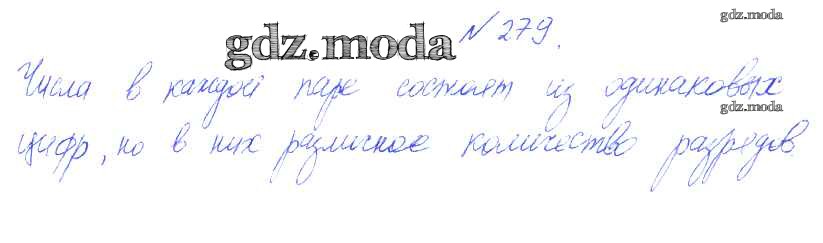 № 279.
gdz.moda
gdz.moda
Числа в каждой паре состоят из одинаковых
gdz.moda
цифр, но в них различное количество разрядов.